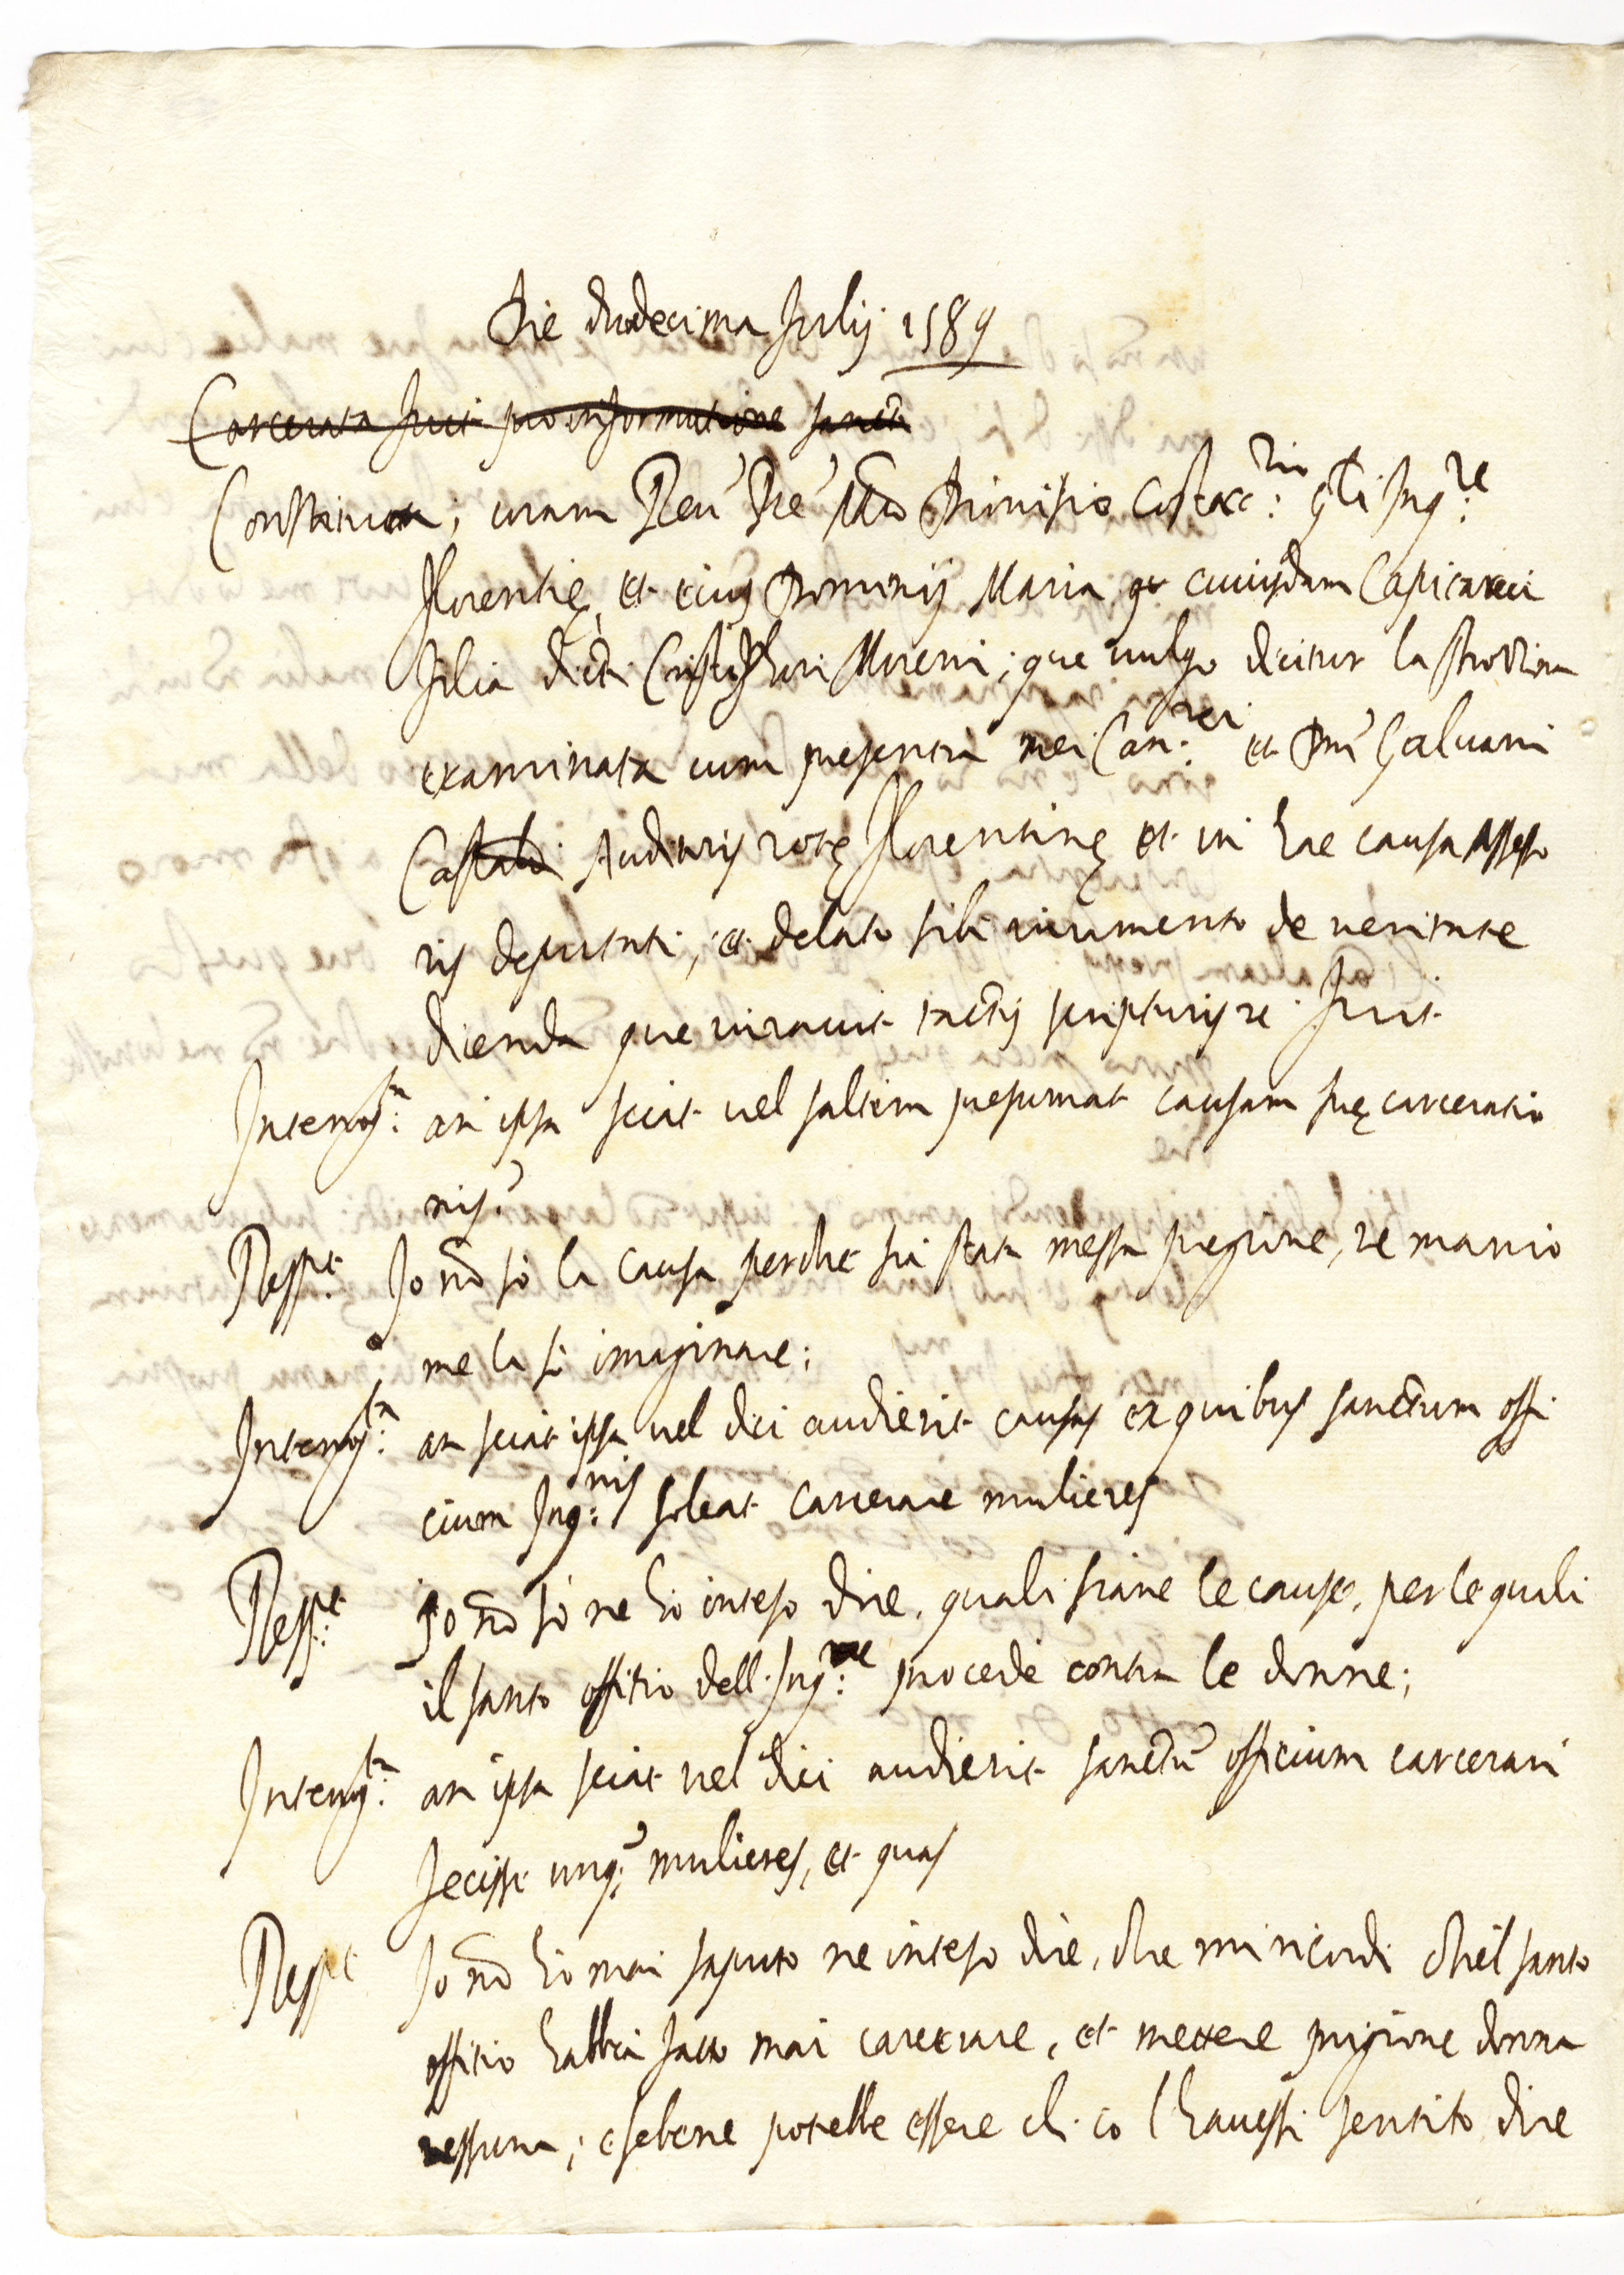 Die duodecima Julij 1589
Carcerata fuit pro informatione sancti
Constituta, coram Reu: Pre Mro Dionisio Costacc:rio gnli Inq:re
Florentię, et eius Dominij Maria q: cuiusdam Capitanei
filia dicti Cristophori Moreni; que vulgo dicitur la
examinata cum presentia mei Can:rei et Dni Galuani
Castaldi Auditoris rotę florentinę et in hac causa assesso
ris deputati, et delato sibi iuramento de veritate
dicenda que iurauit tactis scripturis re fuit
Interrog:ta an ipsa sciat vel saltem presumat causam suę carceratio
nis?
Resp:t Io nō so la causa perche sia stata messa pregione, ne manco
me la so imaginare;
Interrog:ta an sciat ipsa vel dici audierit causas ex quibus sanctum offi
cium Inq:nis soleat carcerare mulieres
Resp:t Io nō so ne ho inteso dire, quali siano le cause, per le quali
il santo offitio dell Inq:ne procede contra le donne;
Interrog:ta an ipsa sciat vel dici audierit sanctū officium carcerari
fecisse unq: mulieres, et quas
Resp:t Io nō ho mai saputo ne inteso dire, che mi ricordi che'l santo
offitio habbia fatto mai carcerare, et mettere prigione donna
nessuna; e sebene potrebbe essere ch' io l'hauessi sentito dire